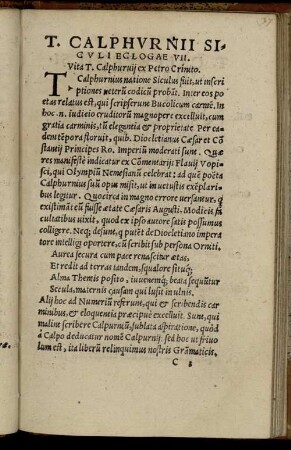 T. CALPHVRNII SI-
CVLI EGLOGAE VII.
Vita T. Calphurnij ex Petro Crinito.
T. Calphurnius natione Siculus fuit, ut inscri
ptiones ueterũ codicũ probãt. Inter eos po
etas relatus est, qui scripserunt Bucolicum carmẽ. In
hoc .n. iudicio eruditorũ magnopere excelluit, cum
gratia carminis, tũ elegantia & proprietate. Per ea
dem tẽpora floruit, quib. Diocletianus Cæsar et Cõ
stantij Principes Ro. Imperiũ moderati sunt. Quæ
res manifestè indicatur ex Cõmentarijs Flauij Vopi-
sci, qui Olympiũ Nemesianũ celebrat: ad quẽ poëta
Calphurnius suũ opus misit, ut in uetustis exẽplari-
bus legitur. Quocirca in magno errore uersantur, q
existimãt eũ fuisse ætate Cæsaris Augusti. Modicis fa
cultatibus uixit, quod ex ipso autore satis possumus
colligere. Neq; desunt, q putẽt de Diocletiano impera
tore intelligi oportere, cũ scribit sub persona Orniti.
Aurea secura cum pace renascitur ætas.
Et redit ad terras tandem, squalore situq́;
Alma Themis posito, iuuenemq́; beata sequũtur
Secula, maternis causam qui lusit in ulnis.
Alij hoc ad Numeriũ referunt, qui & scribendis car
minibus, & eloquentia præcipuè excelluit. Sunt, qui
maline scribere Calpurniũ, sublata aspiratione, quòd
à Calpo deducatur nomẽ Calpurnij. sed hoc ut friuo
lum est, ita liberũ relinquimus nostris Grãmaticis.
C 8